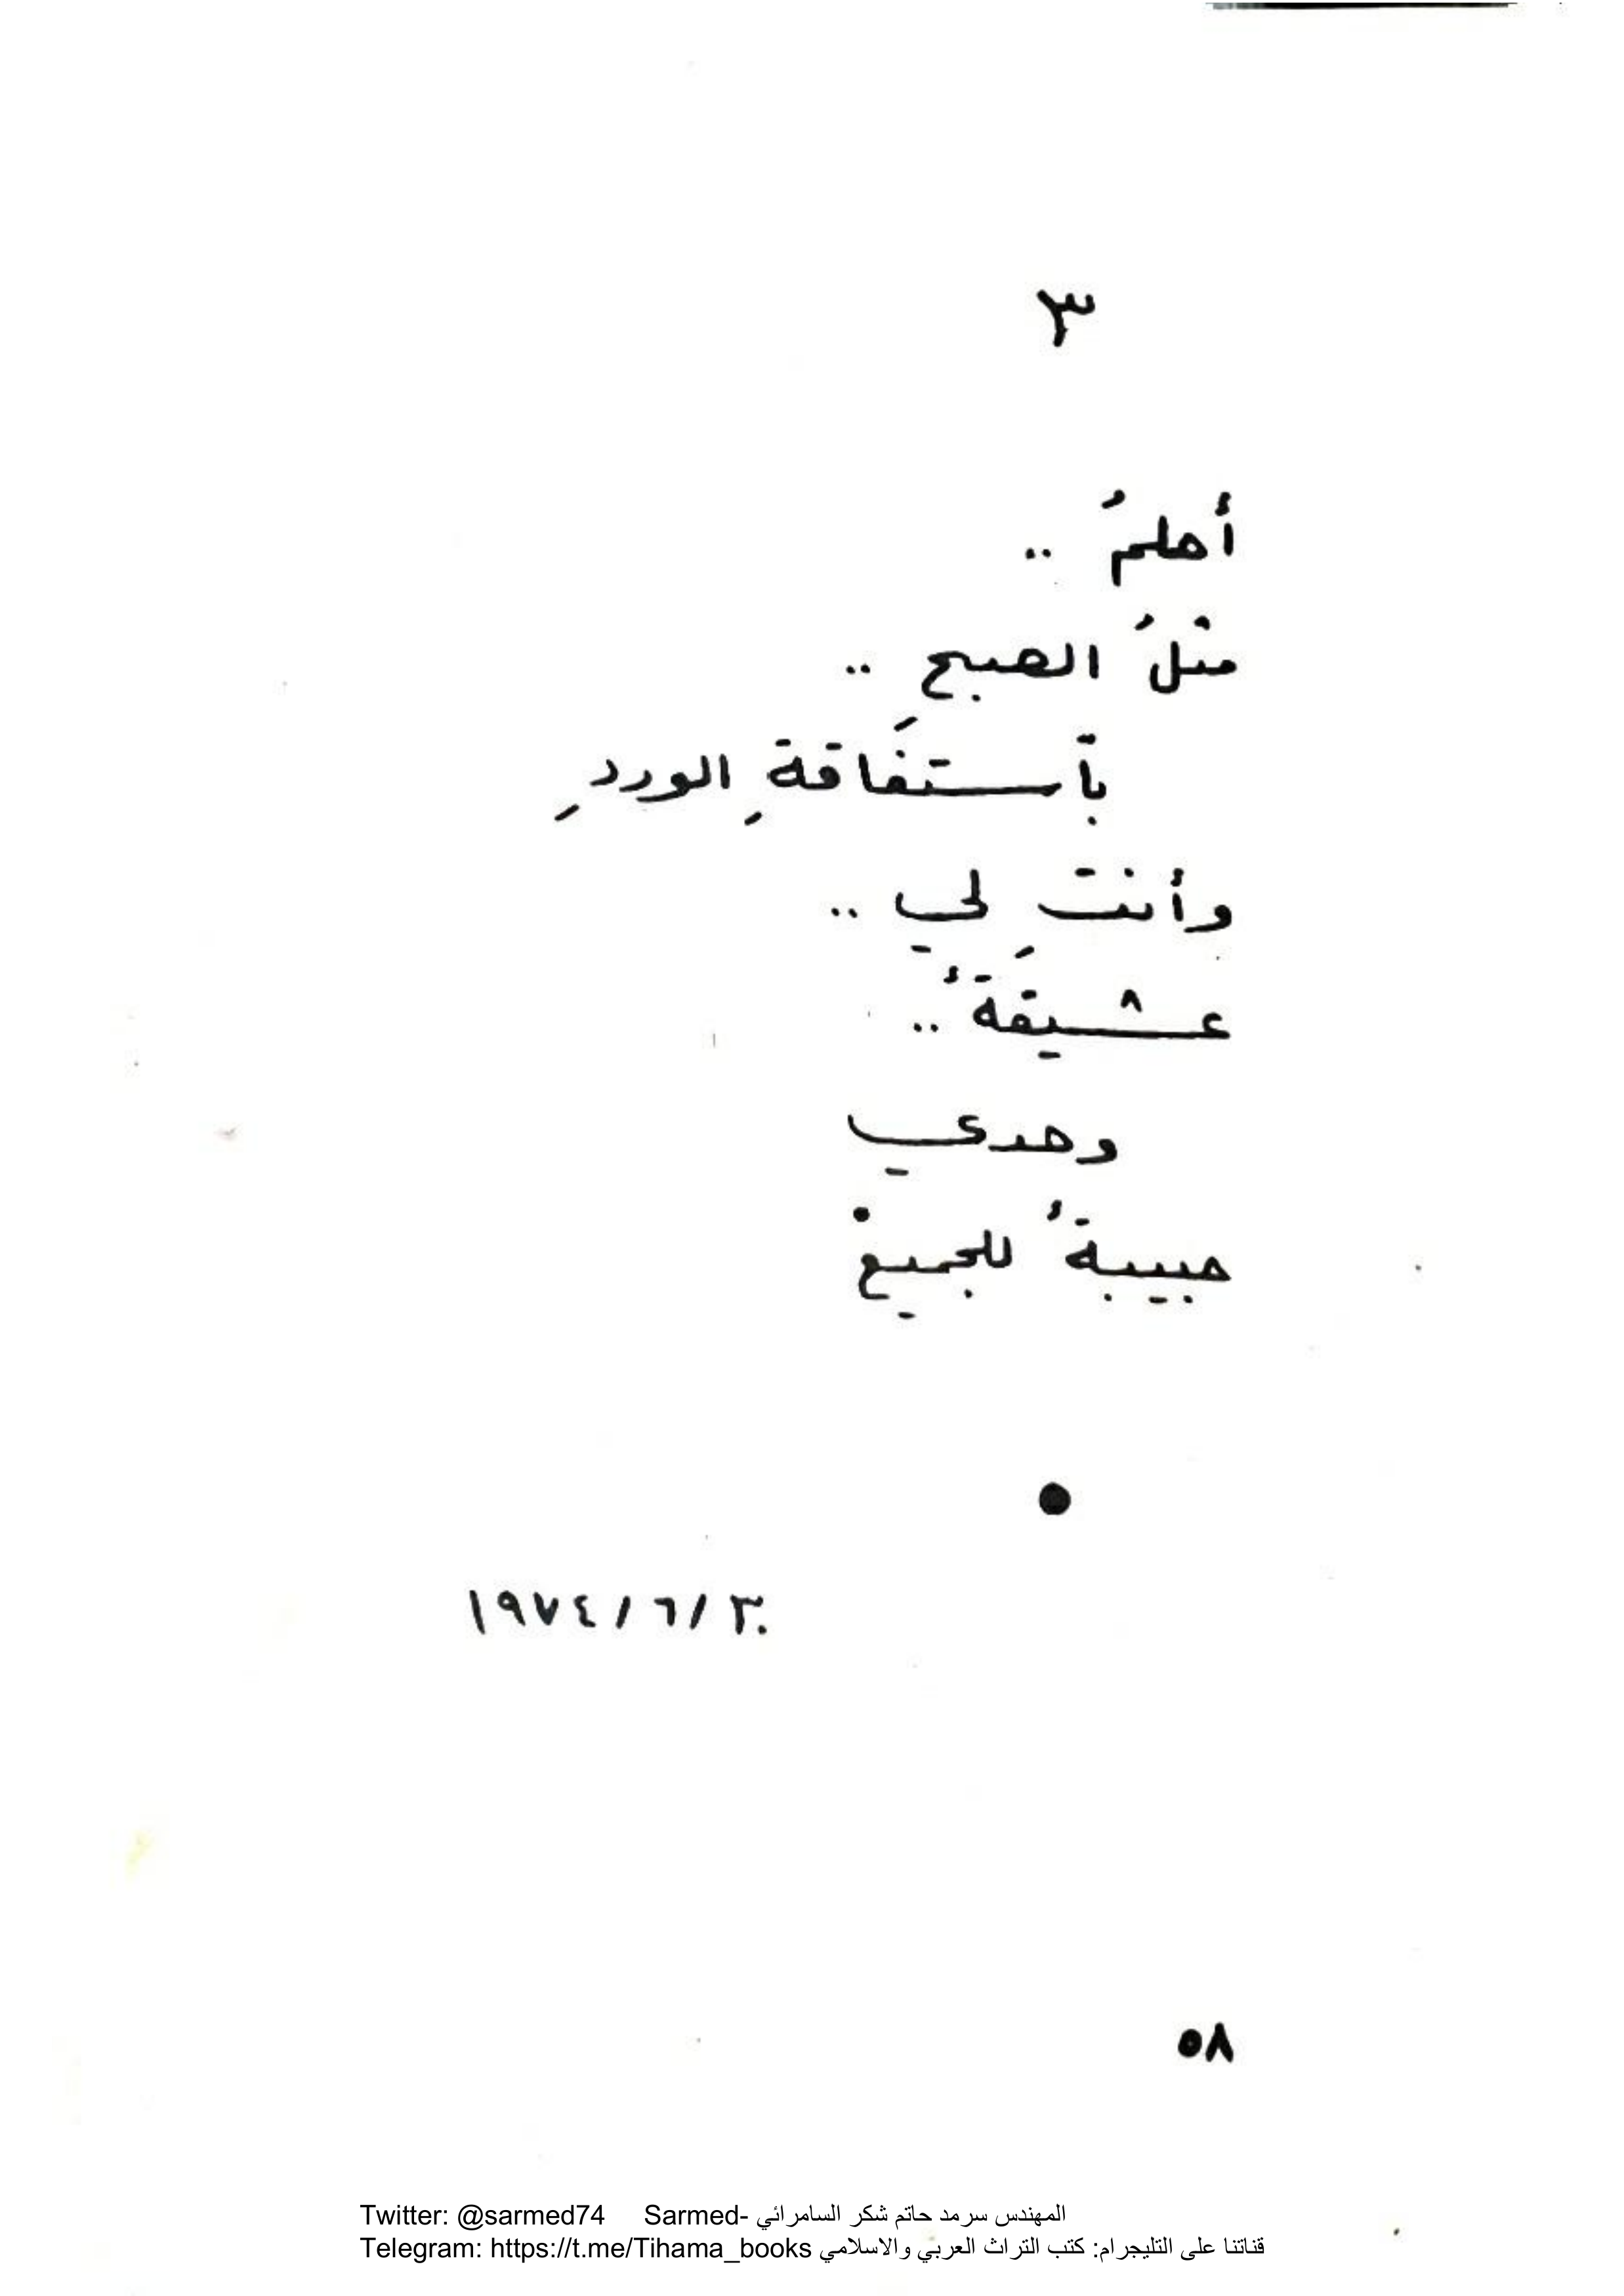 ٣
أحلمُ ..
مثلُ الصبح ..
بآستفَاقةِ الوردِ
وأنت لي ..
عشيقَةٌ ..
وحدي
حبيبةٌ للجميعْ
●
١٩٧٤/٦/٣٠
٥٨
Twitter: @sarmed74 Sarmed- المهندس سرمد حاتم شكر السامرائي
Telegram: https://t.me/Tihama_books قناتنا على التليجرام: كتب التراث العربي والاسلامي